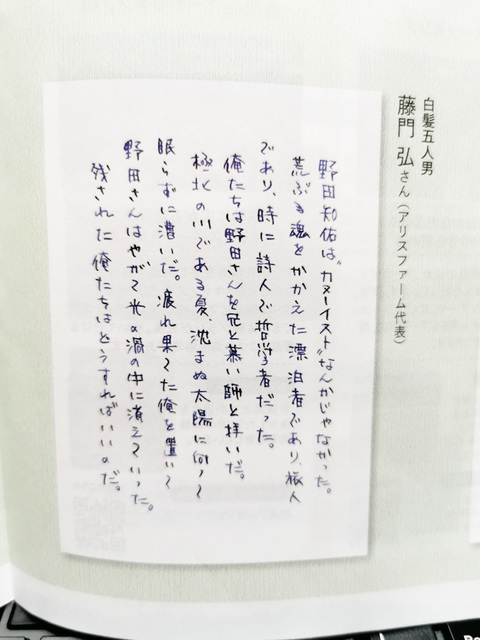 白髪五人男
藤門 弘さん（アリスファーム代表）
野田知佑は〝カヌーイスト〟なんかじゃなかった。
荒ぶる魂をかかえた漂泊者であり、旅人
であり、時に詩人で哲学者だった。
俺たちは野田さんを兄と慕い師と拝いだ。
極北の川である夏、沈まぬ太陽に向って
眠らずに漕いだ。疲れ果てた俺を置いて
野田さんはやがて光の渦の中に消えていった。
残された俺たちはどうすればいいのだ。